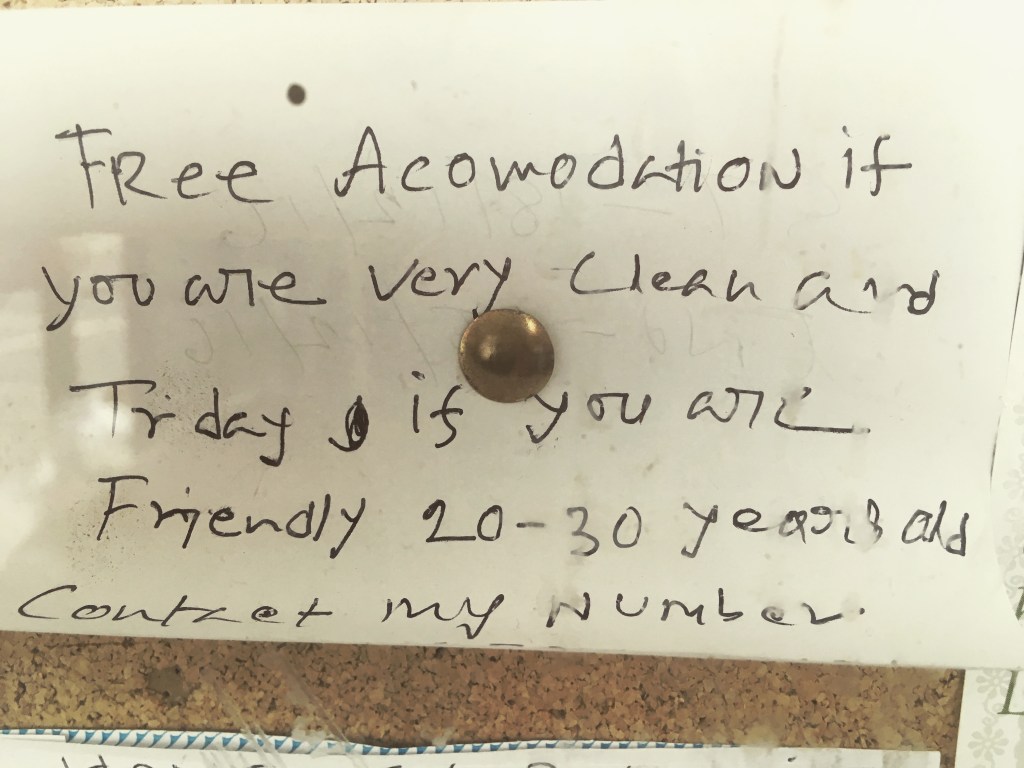 FRee Acomodation if
you are very Clean and
Triday if you are
Friendly 20-30 years old
Contact my Number.